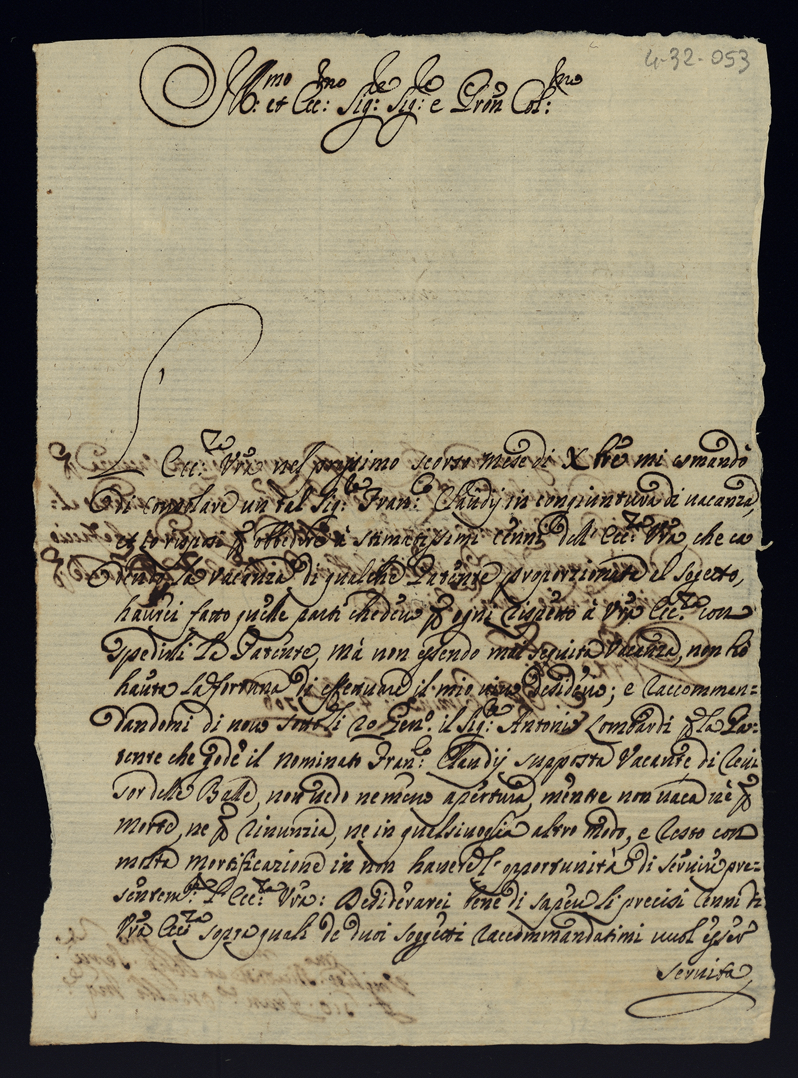 4-32-053
Ill.mo et Ecc.mo Sig.re Sig.re e Pron Col.mo
L' Ecc.za Vra nel prossimo scorso mese di Xbre mi comandò
di consolare un tal Sig.r Fran.co Claudij in congiuntura di vacanza,
et io risposi p obbedire à stimatissimi cenni dell' Ecc.za Vra che ca
dendo la vacanza di qualche Patente proporzionata al sogetto,
haurei fatto quelle parti che deuo p ogni rispetto à Vra Ecc.za con
spedirli la Patente, mà non essendo mai seguita Vacanza, non hò
hauta la fortuna di effettuare il mio viuo desiderio; e raccoman=
dandomi di nouo sotto li 20 Gen.o il Sig.r Antonio Lombardi p la Pa=
tente che gode il nominato Fran.co Claudij supposta Vacante di Reui
sor delle Balle, non uedo ne meno apertura, mentre non uaca nè p
morte, ne p rinunzia, ne in qualsiuoglia altro modo, e resto con
molta mortificazione in non hauere l' opportunità di seruire pre=
sentem.te l' Ecc.za Vra: Desiderarei bene di sapere li precisi cenni di
Vra Ecc.za sopra quali de duoi soggetti raccommandatimi uuol esser
seruita,